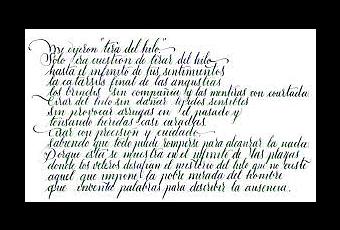 Me dijeron "tira del hilo"
Sólo era cuestión de tirar del hilo
hasta el infinito de tus sentimientos
la catarsis final de las angustias
los brindis sin compañía y las mentiras con coartada.
Tirar del hilo sin dañar tejidos sensibles
sin provocar arrugas en el pasado y
tensando heridas casi curadas.
Tirar con precisión y cuidado
sabiendo que todo puede romperse para alcanzar la nada.
Porque ésta se muestra en el infinito de las playas
donde los veleros desafían el misterio del hilo que no existe
aquel que impone la pobre mirada del hombre
que inventa palabras para describir la ausencia.